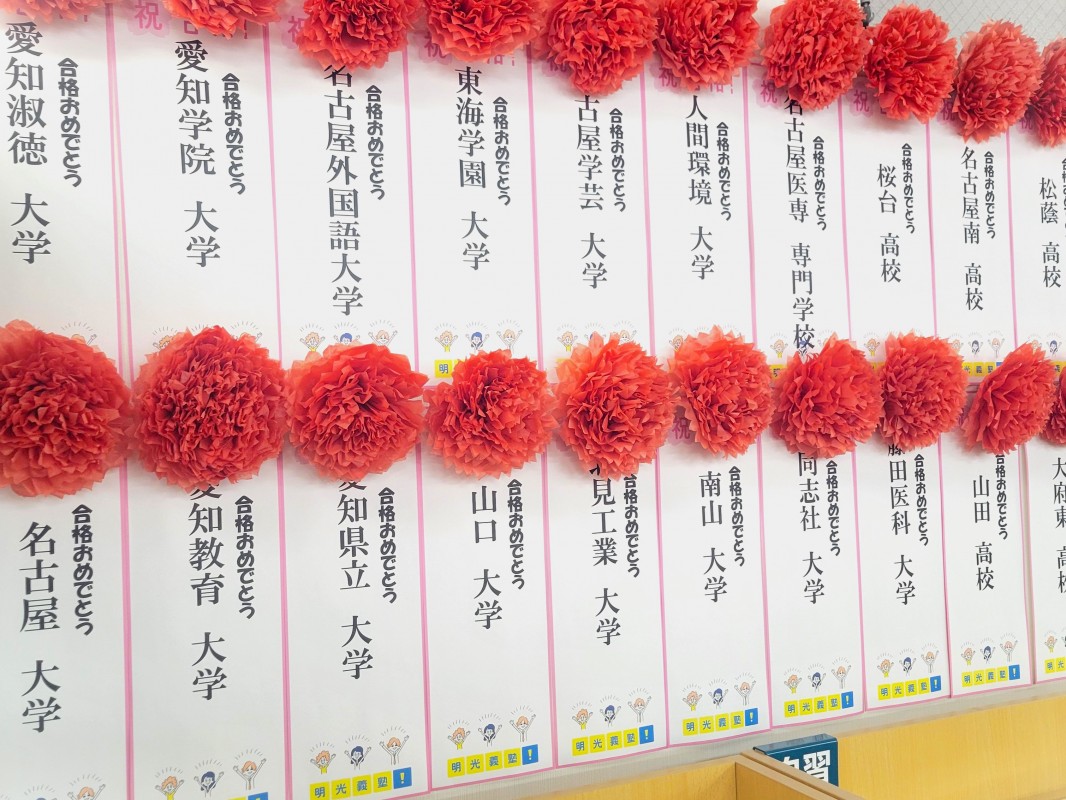 愛知淑徳 大学
合格おめでとう
愛知学院 大学
合格おめでとう
名古屋外国語大学
合格おめでとう
東海学園 大学
合格おめでとう
古屋学芸 大学
合格おめでとう
人間環境 大学
合格おめでとう
名古屋医専 専門学校
合格おめでとう
桜台 高校
合格おめでとう
名古屋南 高校
合格おめでとう
松蔭 高校
祝
祝
祝
祝
祝
祝
明
名古屋 大学
合格おめでとう
愛知教育 大学
合格おめでとう
愛知県立 大学
合格おめでとう
明光義塾!
山口 大学
合格おめでとう
明光義塾!
見工業 大学
合格おめでとう
明光義塾!
祝
南山 大学
合格おめでとう
明光義塾!
同志社 大学
合格おめでとう
明光義塾!
藤田医科 大学
合格おめでとう
明光義塾!
山田 高校
合格おめでとう
明光義塾!
大府東 高校
明光
習